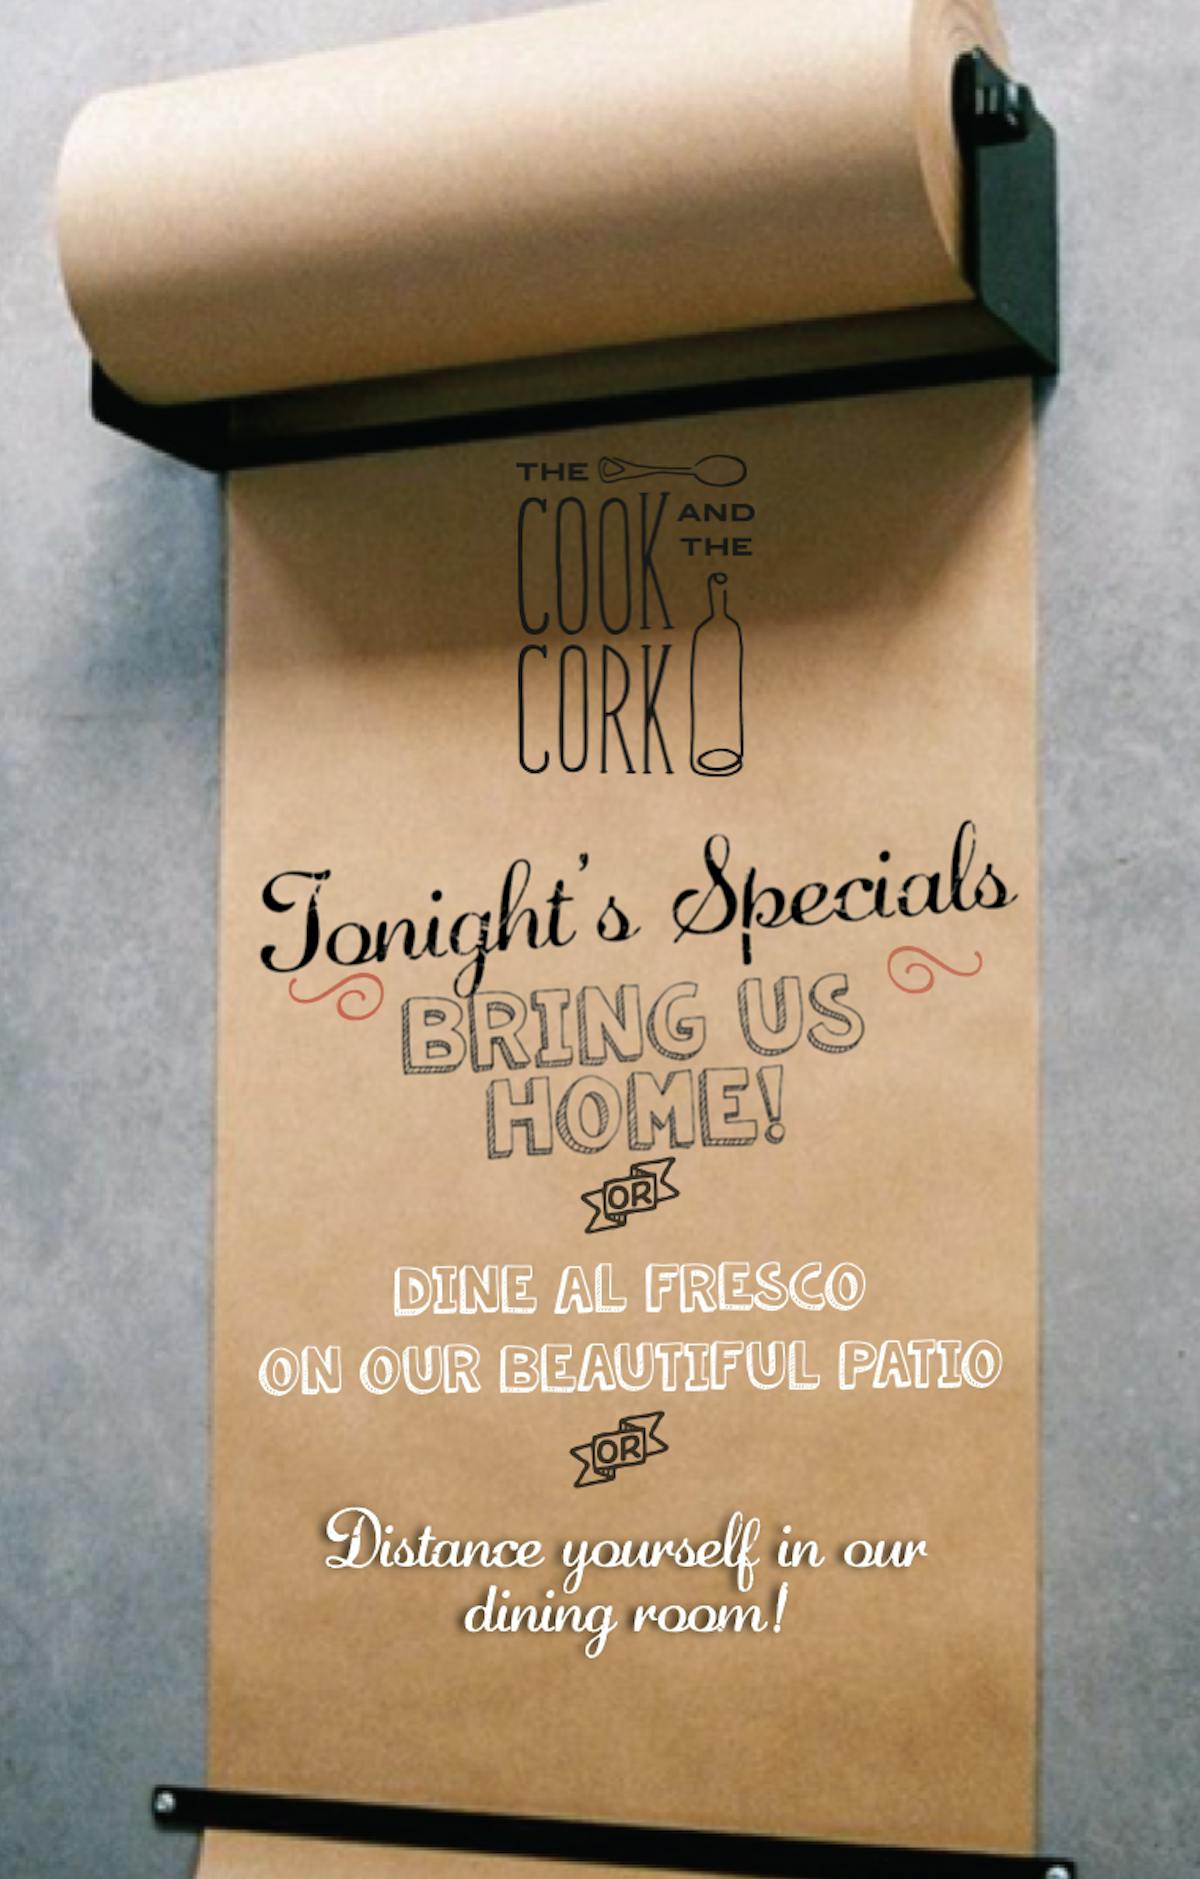 THE
COOK AND
THE
CORK
Tonight's Specials
BRING US
HOME!
OR
DINE AL FRESCO
ON OUR BEAUTIFUL PATIO
OR
Distance yourself in our
dining room!